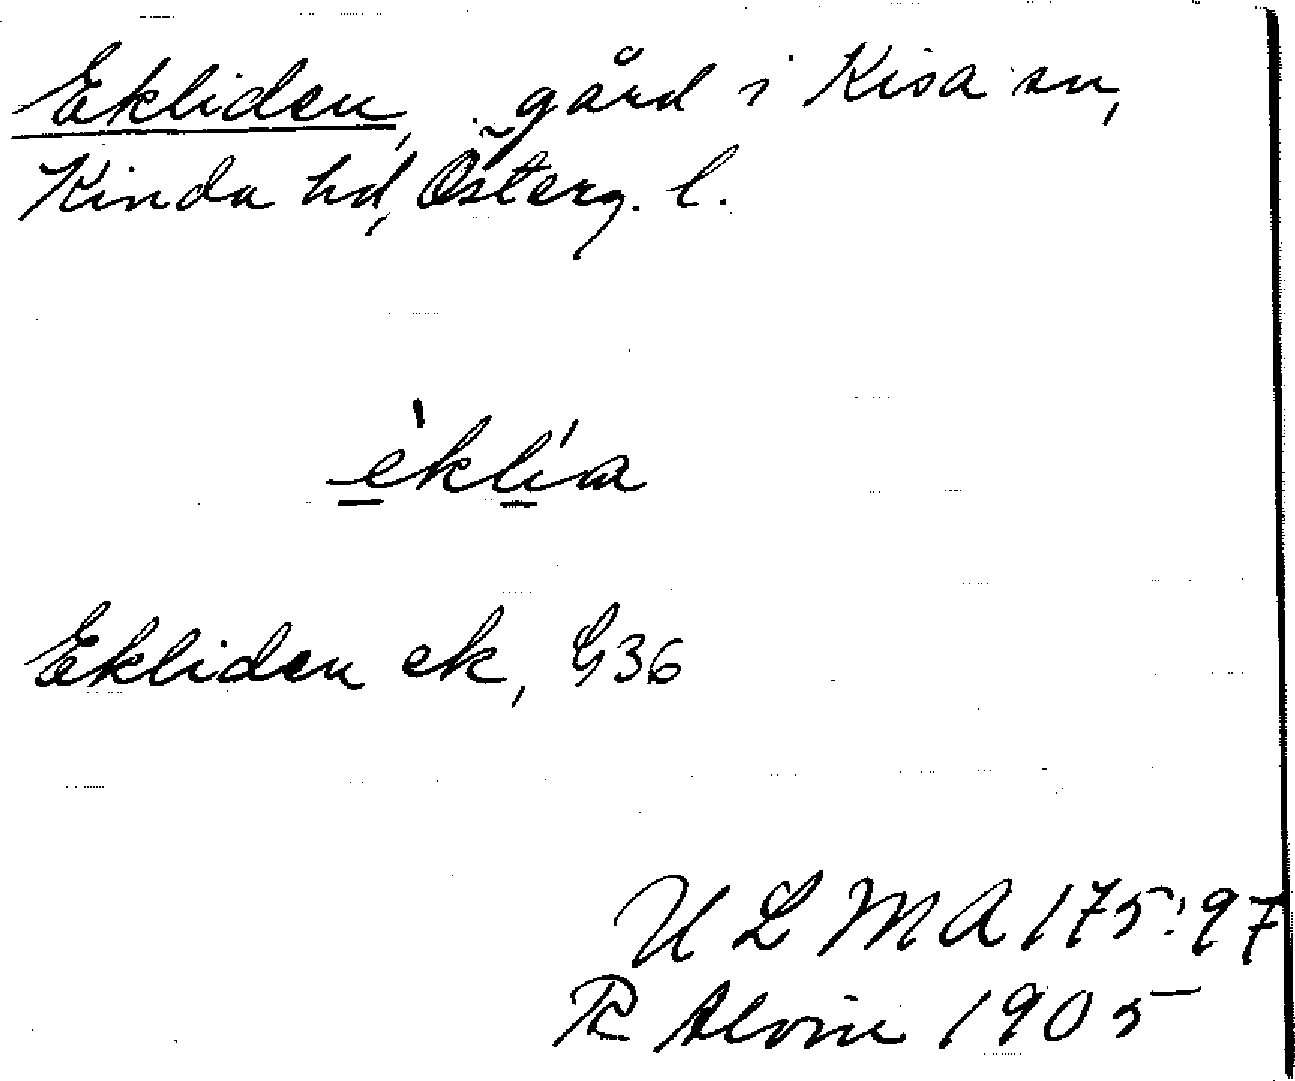 Ekliden, gård i Kisa sn,
Kinda hd, Österg. l.
èklía
Ekliden ek, G36
ULMA 175:97
R Alvin 1905